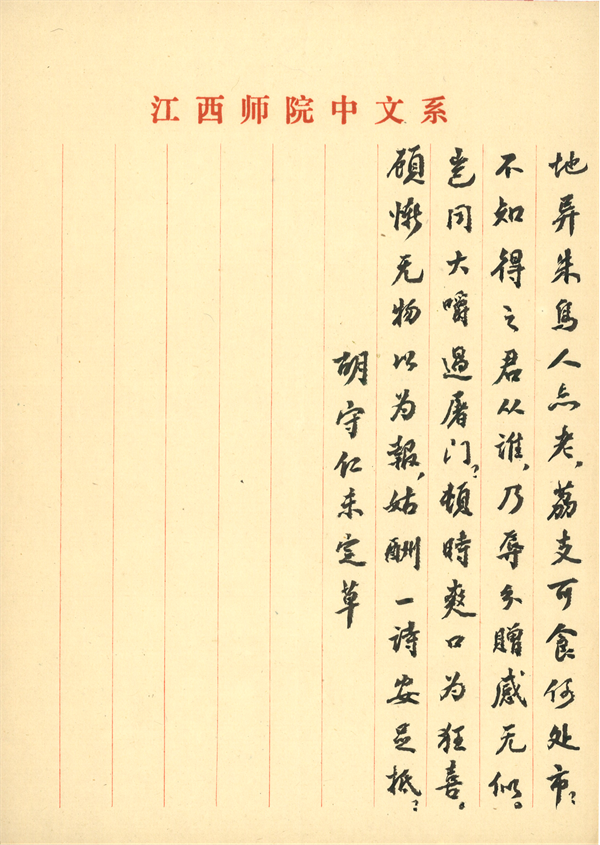 江西师院中文系
地异朱鳥人亦老，荔支可食何处市？
不知得之君从谁，乃辱分贈感无似。
岂同大嚼過屠门？頓時爽口为狂喜。
顾惭无物以为報，姑酬一诗安足抵？
胡守仁未定草